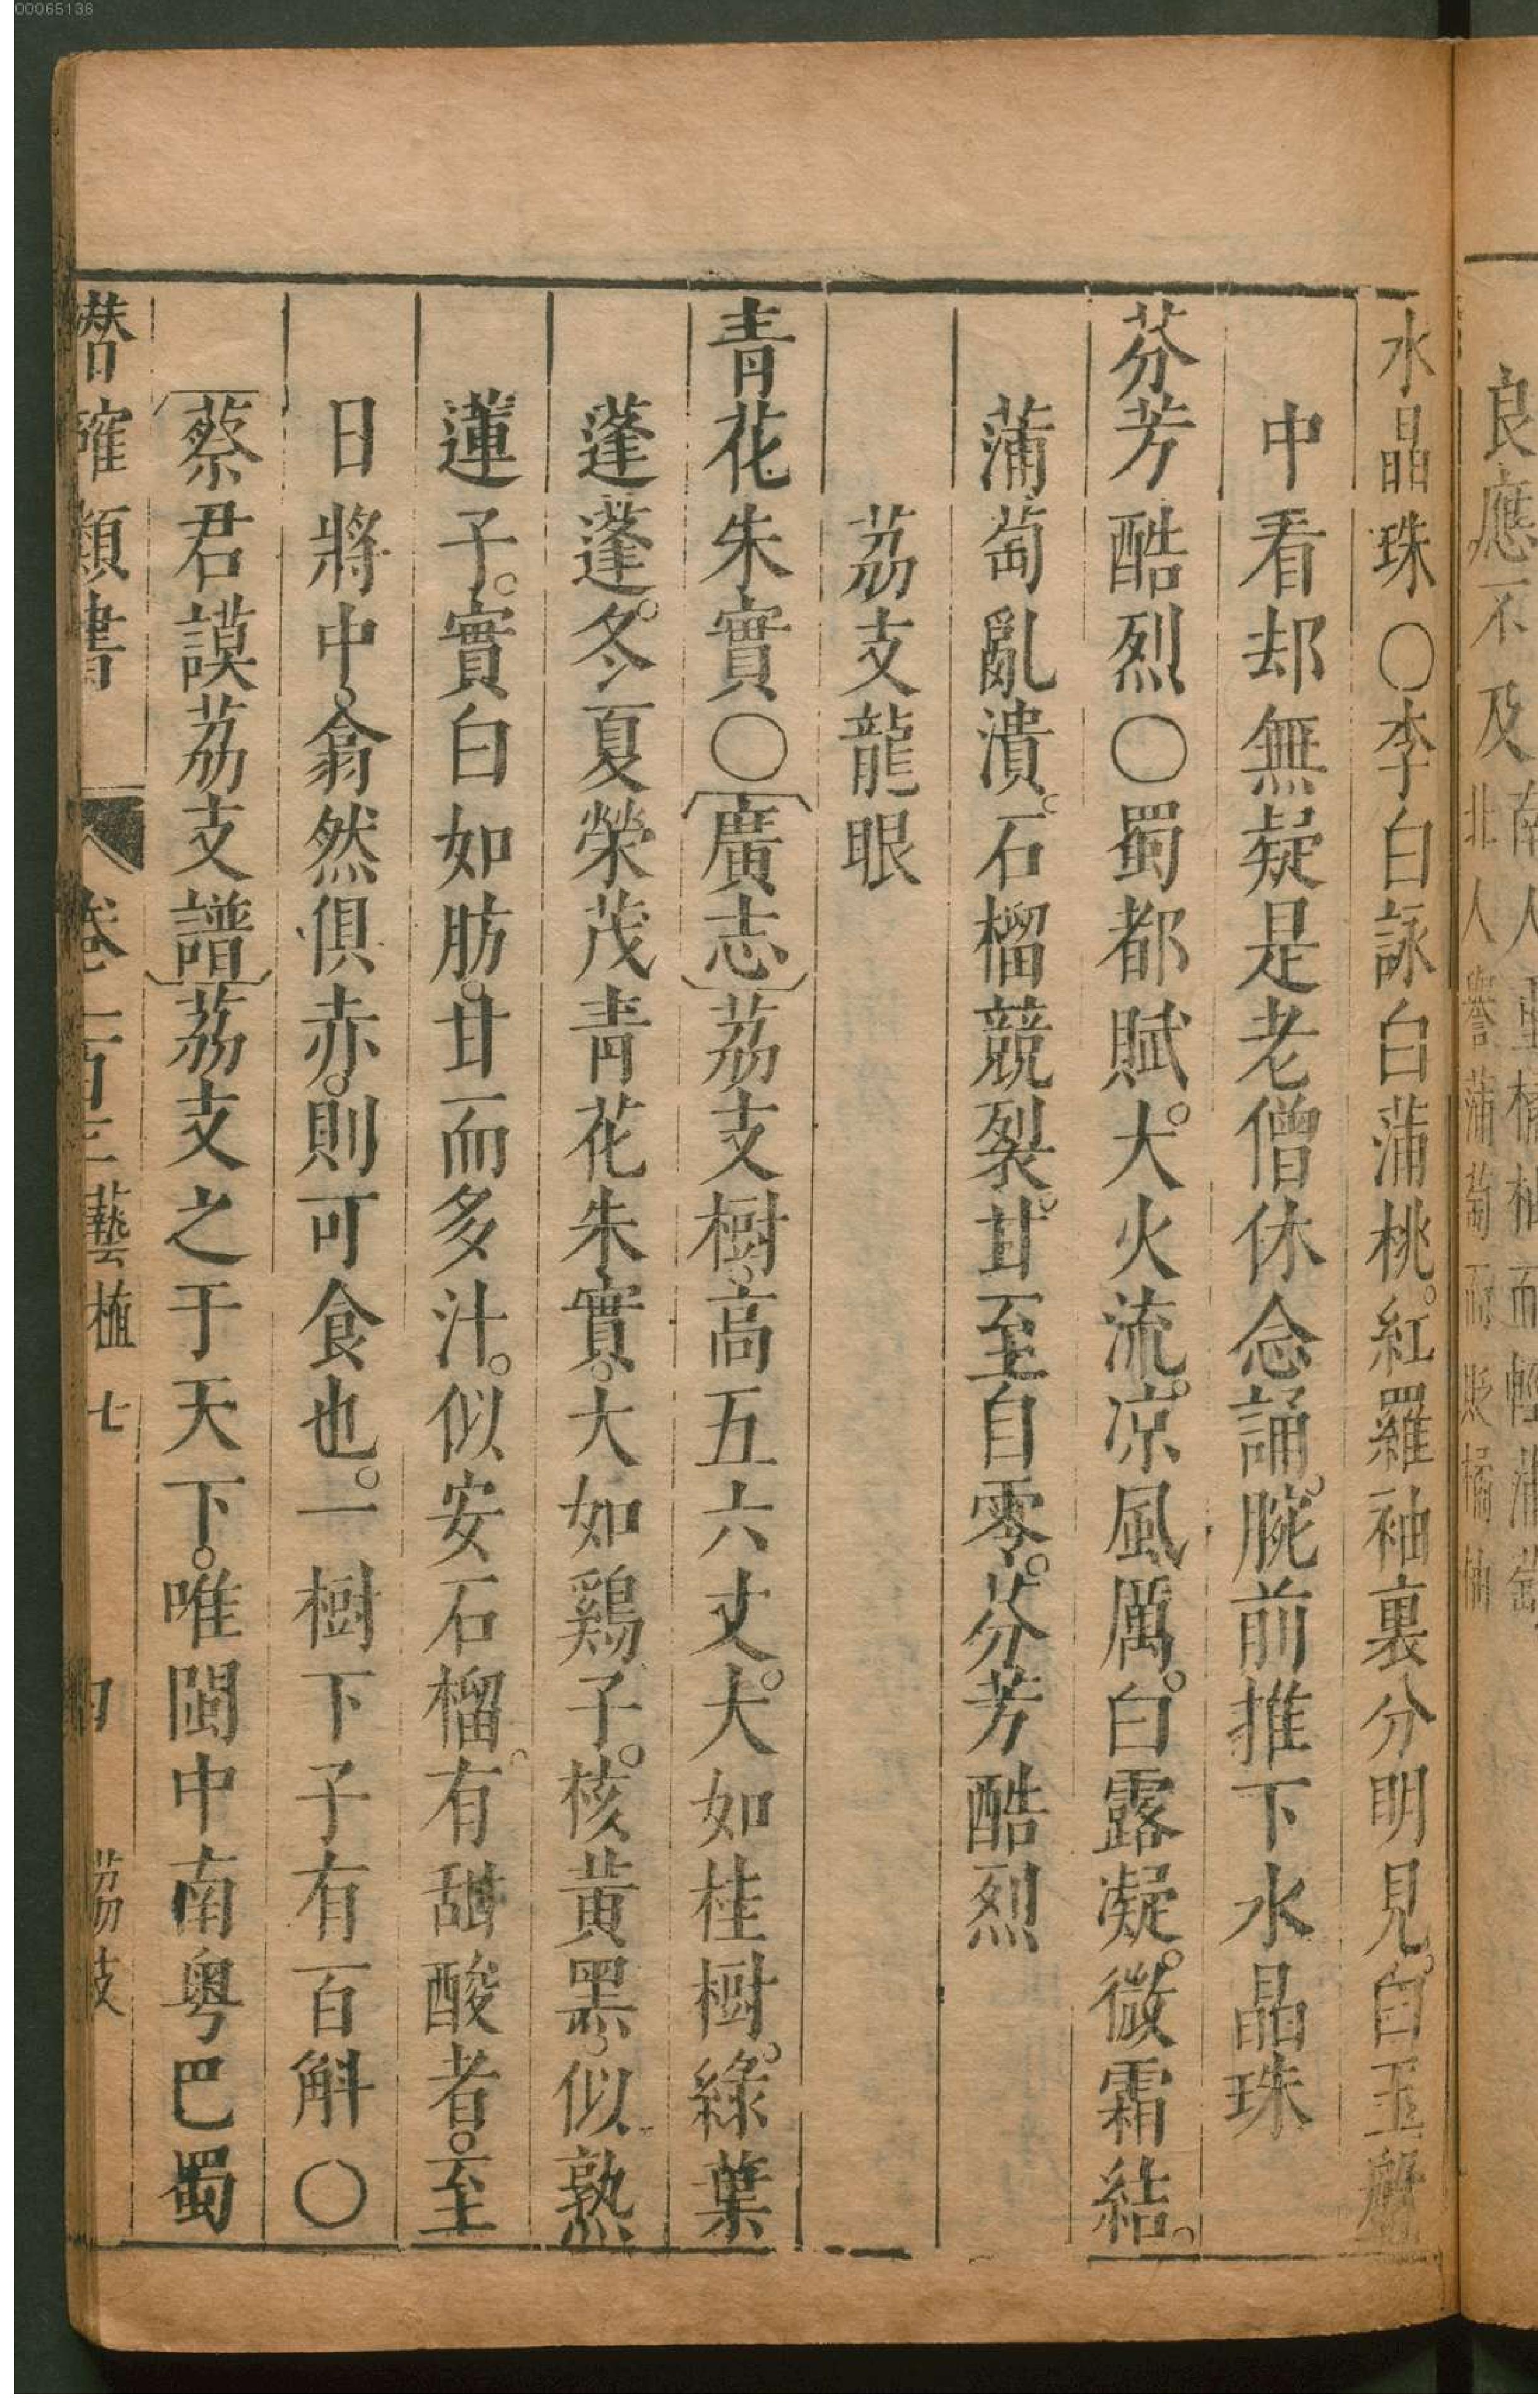 00065138
良應不及南人重橘柚而輕蒲萄
北人譽蒲萄而貶橘柚
水晶珠○李白詠白蒲桃。紅羅袖裏分明見。白玉盤
中看却無疑是老僧休念誦。腕前推下水晶珠
芬芳酷烈○蜀都賦。大火流。凉風厲。白露凝。微霜結。
蒲萄亂潰。石榴競裂。甘至自零。芬芳酷烈
荔支龍眼
青花朱實○〔廣志〕荔支樹。高五六丈。大如桂樹。綠葉
蓬蓬。冬夏榮茂青花朱實。大如鷄子。核黃黑。似熟
蓮子。實白如肪。甘而多汁。似安石榴。有甜酸者。至
日將中。翕然俱赤。則可食也。一樹下子有百斛○
〔蔡君謨荔支譜〕荔支之于天下。唯閩中南粵巴蜀
潛確類書 卷一百三藝植七 四 荔枝